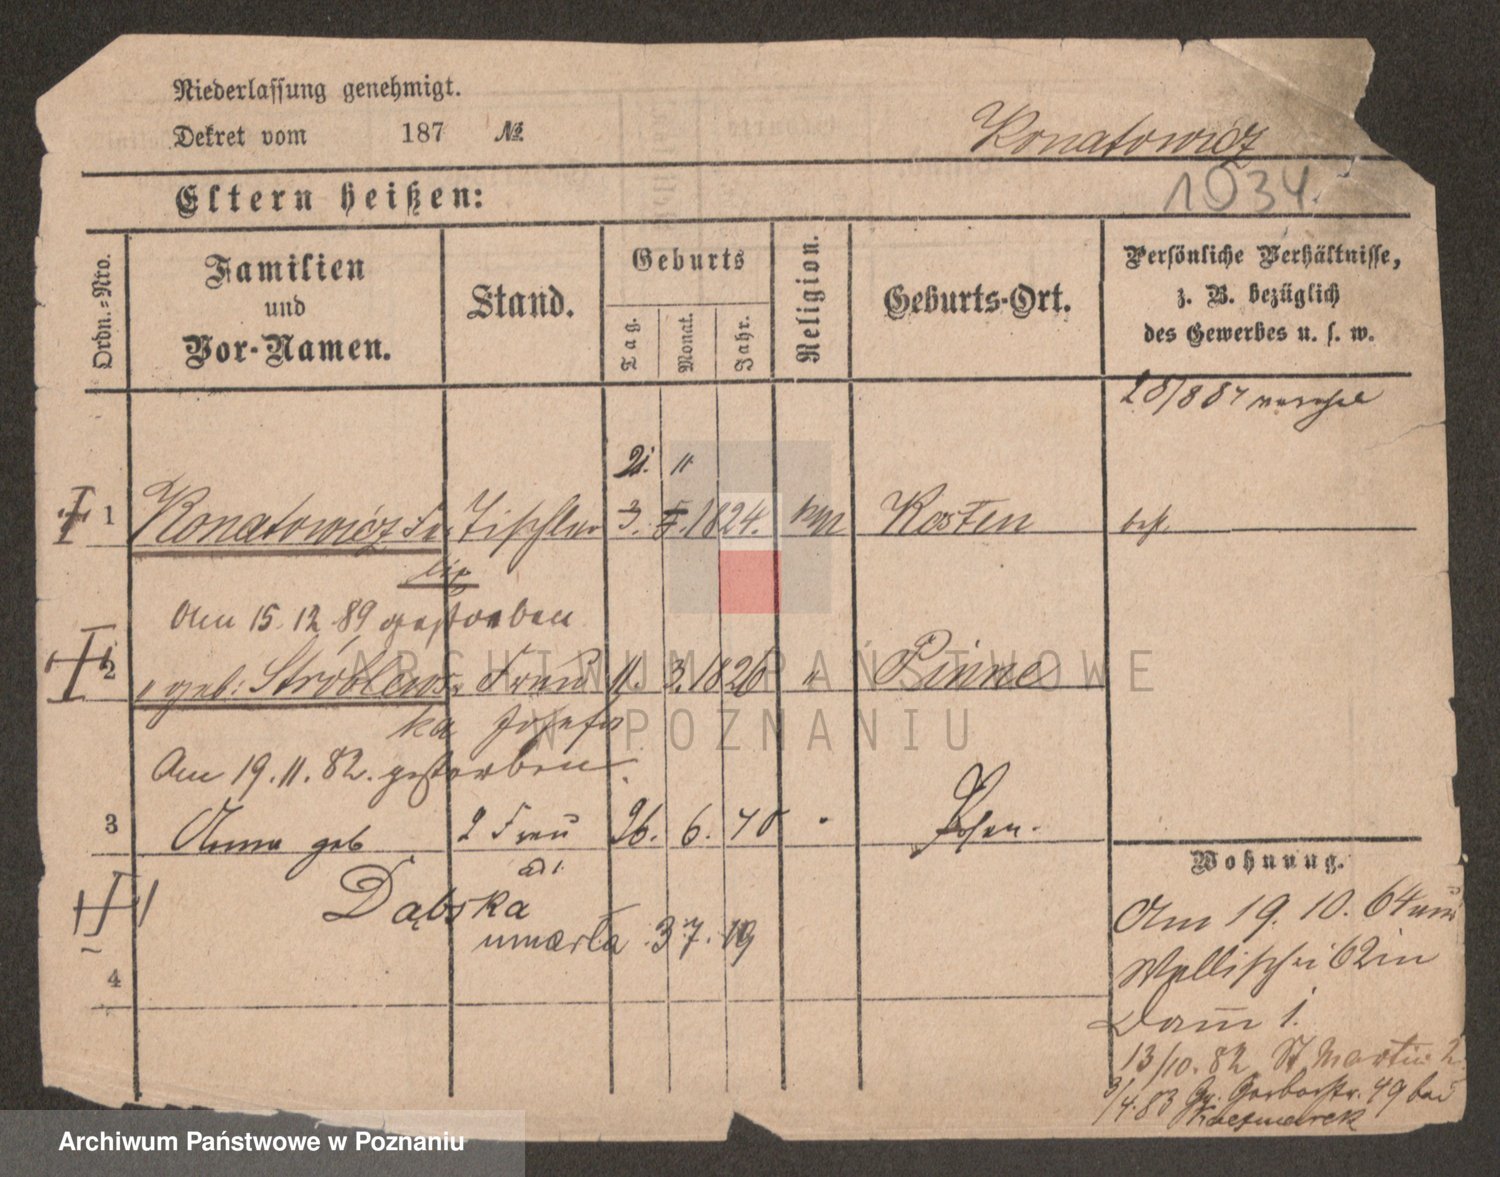 Niederlassung genehmigt.
Dekret vom 187 №
Konatowicz
1034.
Eltern heißen:
Ordn.-Nro.
Familien
und
Vor-Namen.
Stand.
Geburts
Tag.
Monat.
Jahr.
Religion.
Geburts-Ort.
Persönliche Verhältnisse,
z. B. bezüglich
des Gewerbes u. s. w.
1 Konatowicz Tischler 3. 1824. Kosten
Am 15. 12. 89 gestorben
2 geb: Frau 11. 3. 1826 " Pinne
ka Josefa
Am 19. 11. 82. gestorben.
3 Anna geb 2 Frau 26. 6. Posen.
Dąbska
umarła 3. 7. 19
4
Wohnung.
Am 19. 10. 64
Wallischei 62 in
Dom 1.
13/10. 82 St Martin 2
3/4. 83 Gr. Gerberstr. 49 bei
Kaczmarek
ARCHIWUM PAŃSTWOWE
W POZNANIU
Archiwum Państwowe w Poznaniu